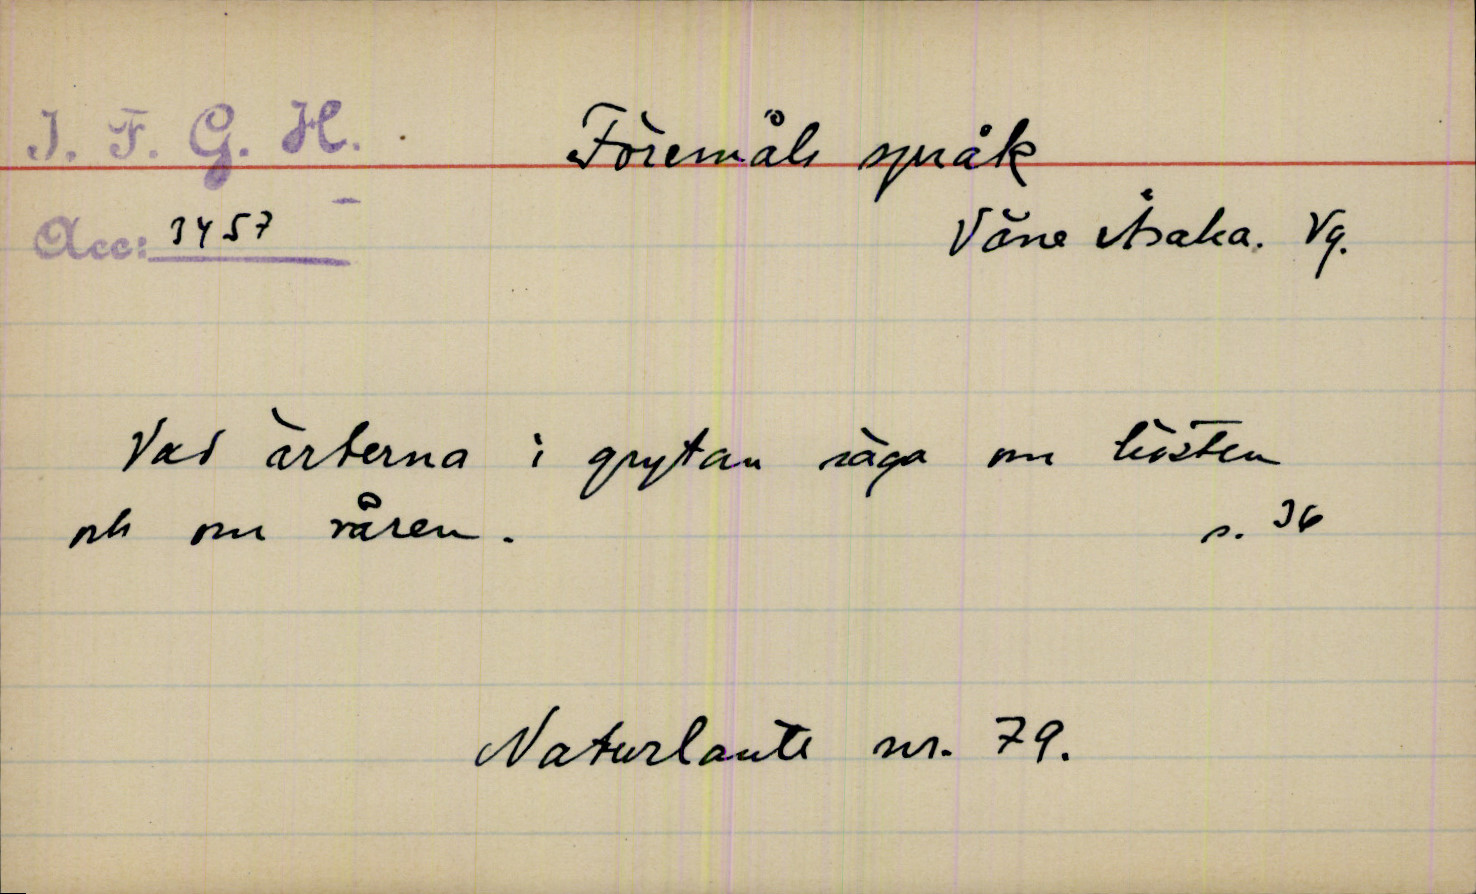 I. F. G. H.
Föremåls språk
Acc: 3457
Väne Åsaka. Vg.
Vad ärterna i grytan säga om hösten
och om våren. s. 36
Naturlaute nr. 79.